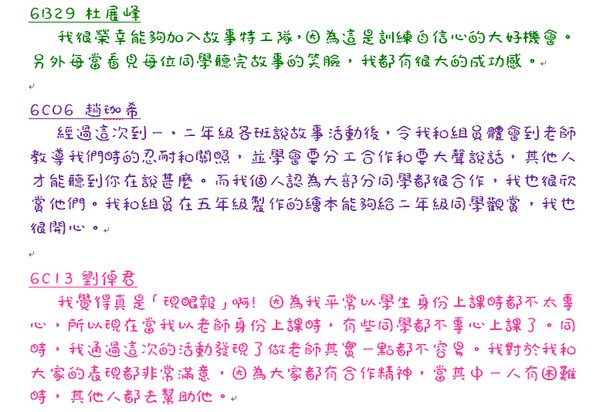 6B29 杜展峰
我很榮幸能夠加入故事特工隊,因為這是訓練自信心的大好機會。
另外每當看見每位同學聽完故事的笑臉,我都有很大的成功感。
6C06 趙珈希
經過這次到一、二年級各班說故事活動後,令我和組員體會到老師
教導我們時的忍耐和關照,並學會要分工合作和要大聲說話,其他人
才能聽到你在說甚麼。而我個人認為大部分同學都很合作,我也很欣
賞他們。我和組員在五年級製作的繪本能夠給二年級同學觀賞,我也
很開心。
6C13 劉倬君
我覺得真是「現眼報」啊! 因為我平常以學生身份上課時都不太專
心,所以現在當我以老師身份上課時,有些同學都不專心上課了。同
時,我通過這次的活動發現了做老師其實一點都不容易。我對於我和
大家的表現都非常滿意,因為大家都有合作精神,當其中一人有困難
時,其他人都去幫助他。